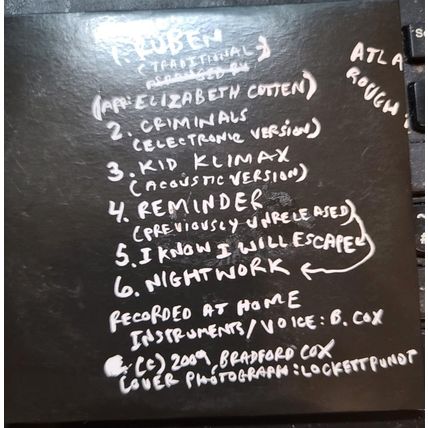 1. RUBEN
(TRADITIONAL,
ARRANGED BY
(ARR: ELIZABETH COTTEN)
2. CRIMINALS
(ELECTRONIC VERSION)
3. KID KLIMAX
(ACOUSTIC VERSION)
4. REMINDER
(PREVIOUSLY UNRELEASED)
5. I KNOW I WILL ESCAPE
6. NIGHTWORK
RECORDED AT HOME
INSTRUMENTS/VOICE: B. COX
(C) 2009, BRADFORD COX
COVER PHOTOGRAPH: LOCKETT PUNDT
ATLA
ROUGH